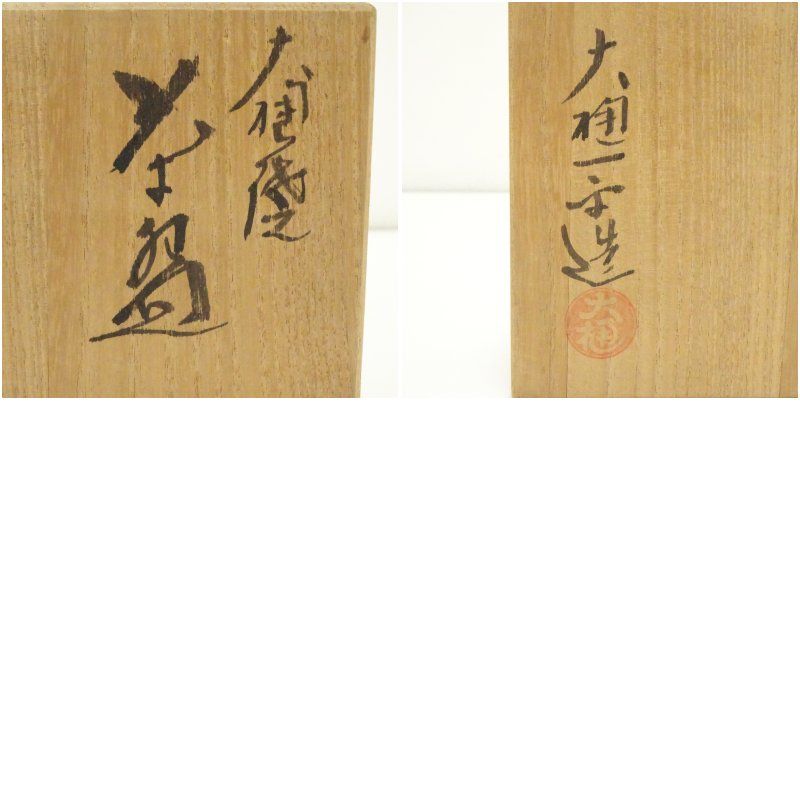 大樋焼
茶盌
大樋一平造
大樋